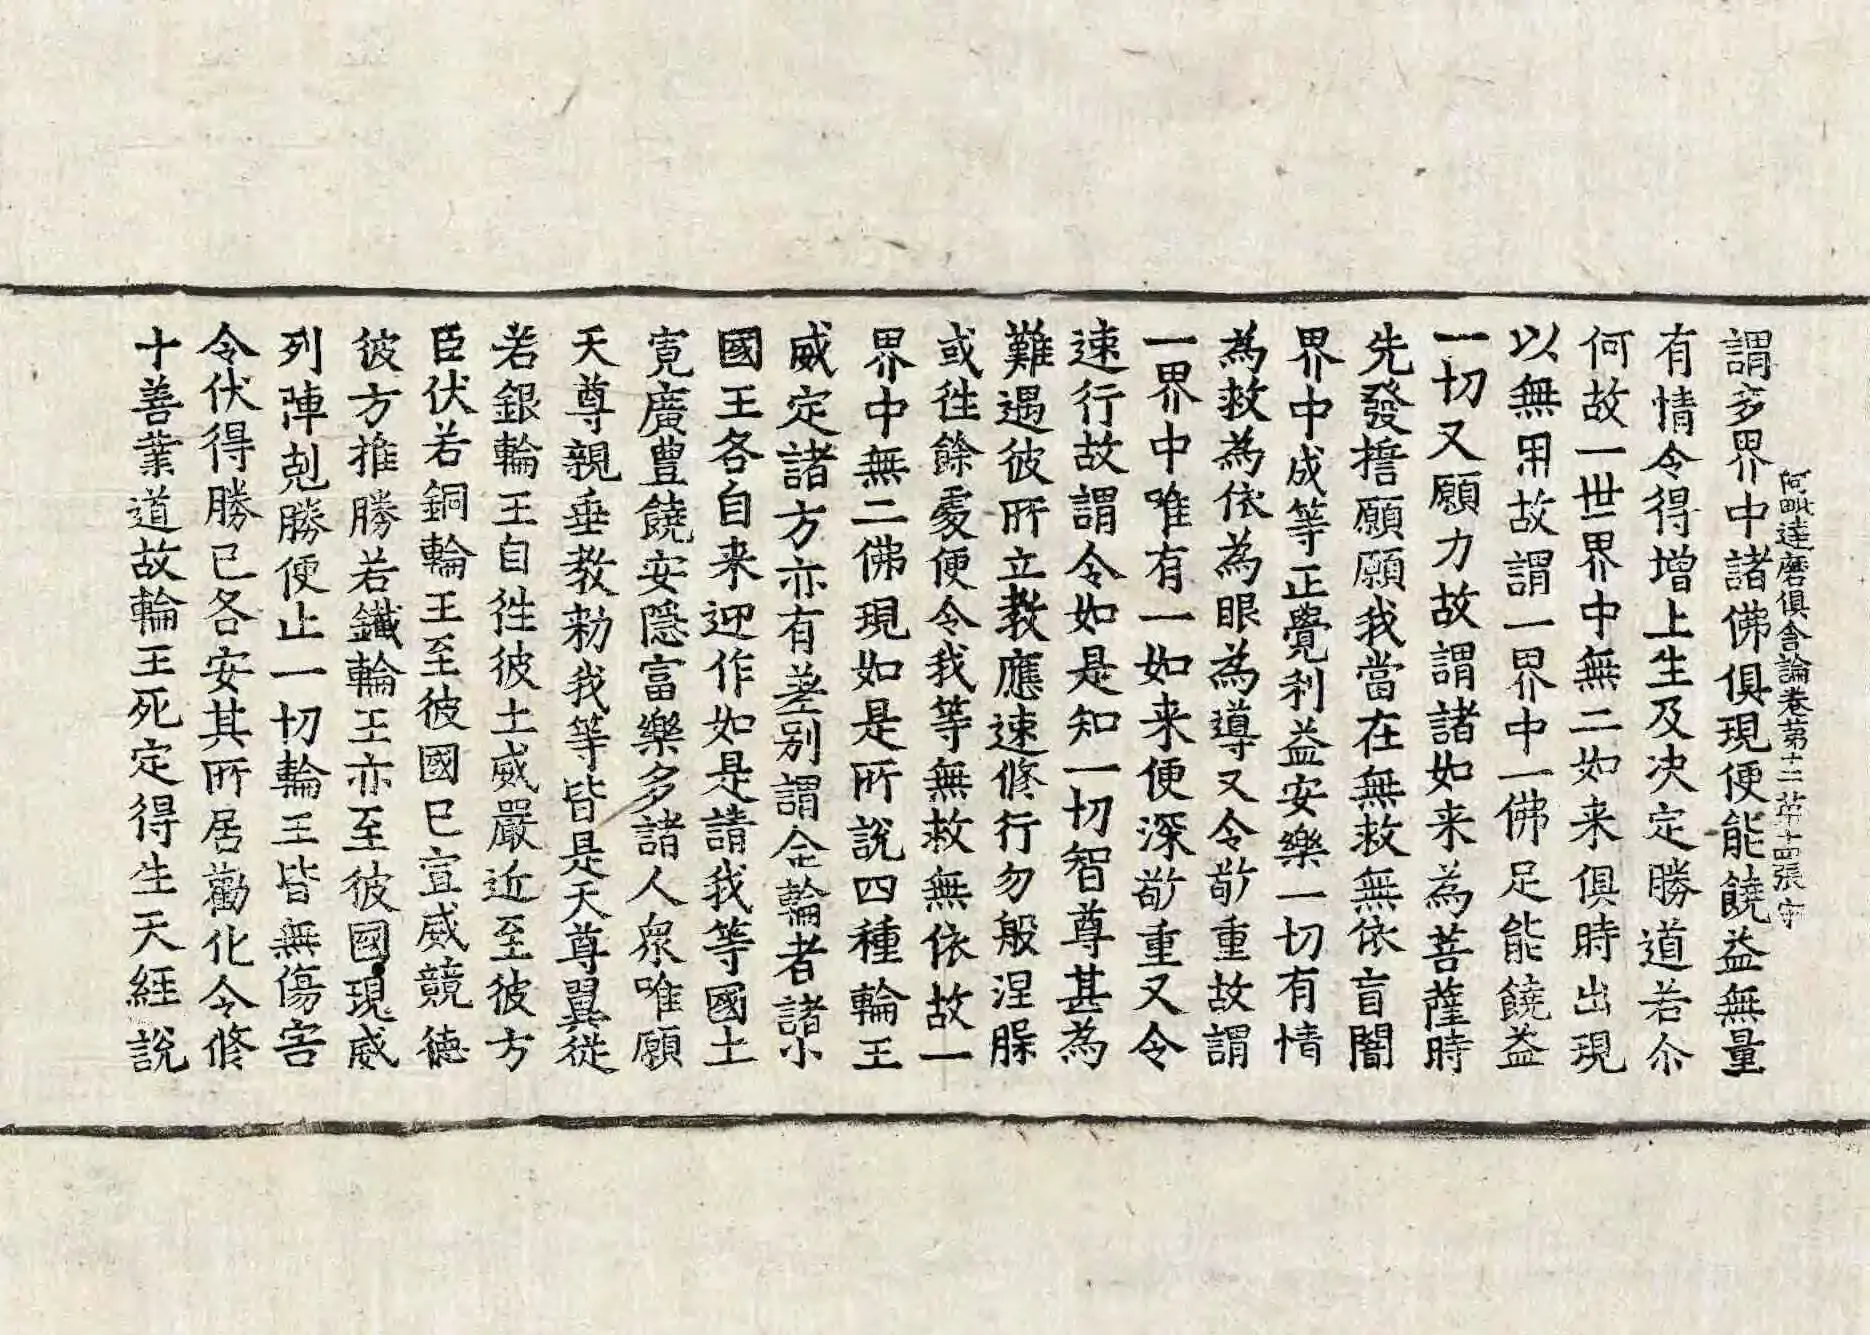 阿毗達磨俱舍論卷第十二　第十四張　宇
謂多界中諸佛俱現便能饒益無量
有情令得增上生及决定勝道若尒
何故一世界中無二如来俱時出現
以無用故謂一界中一佛足能饒益
一切又願力故謂諸如来為菩薩時
先發誓願願我當在無救無依盲闇
界中成等正覺利益安樂一切有情
為救為依為眼為導又令敬重故謂
一界中唯有一如来便深敬重又令
速行故謂令如是知一切智尊甚為
難遇彼所立教應速修行勿般涅槃
或往餘處便令我等無救無依故一
界中無二佛現如是所說四種輪王
威定諸方亦有差别謂金輪者諸小
國王各自来迎作如是請我等國土
寬廣豊饒安隱富樂多諸人衆唯願
天尊親垂教勑我等皆是天尊翼從
若銀輪王自往彼土威嚴近至彼方
臣伏若銅輪王至彼國已宣威競德
彼方推勝若鐵輪王亦至彼國現威
列陣剋勝便止一切輪王皆無傷害
令伏得勝已各安其所居勸化令修
十善業道故輪王死定得生天經說